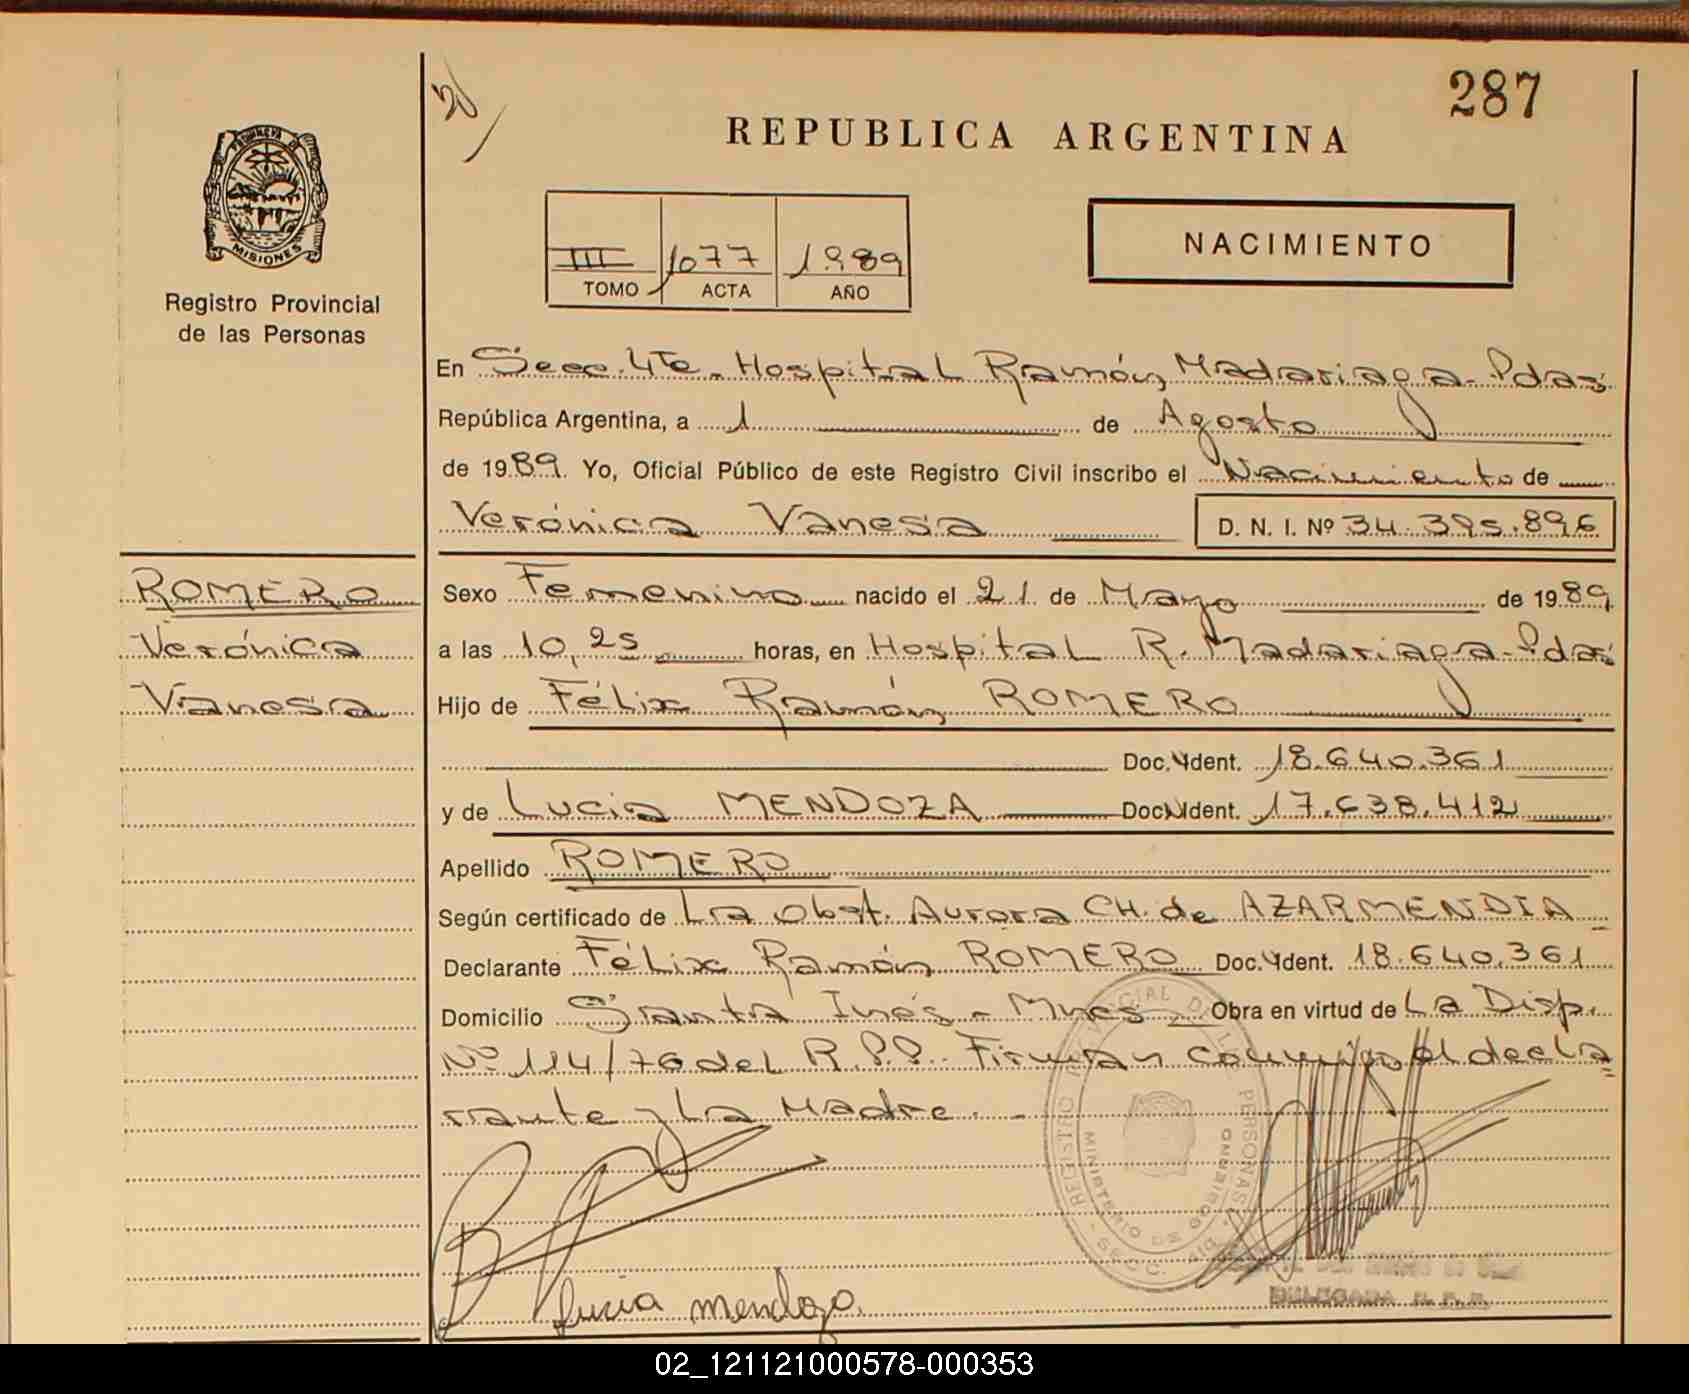 287
REPUBLICA ARGENTINA
PROVINCIA DE
MISIONES
Registro Provincial
de las Personas
III 1077 1989
TOMO ACTA AÑO
NACIMIENTO
En Secc. 4ta. Hospital Ramón Madariaga - Pdas
República Argentina, a 1 de Agosto
de 1989. Yo, Oficial Público de este Registro Civil inscribo el Nacimiento de
Verónica Vanesa D. N. I. Nº 34.395.896
ROMERO
Verónica
Vanesa
Sexo Femenino nacido el 21 de Mayo de 1989
a las 10,25 horas, en Hospital R. Madariaga - Pdas
Hijo de Félix Ramón ROMERO
Doc. Ident. 18.640.361
y de Lucia MENDOZA Doc. Ident. 17.638.412
Apellido ROMERO
Según certificado de La Obst. Aurora CH. de AZARMENDIA
Declarante Félix Ramón ROMERO Doc. Ident. 18.640.361
Domicilio Santa Inés - Mnes Obra en virtud de La Disp.
Nº 114/76 del R.P.P. Firman conmigo el decla
rante y La Madre. -
REGISTRO PROVINCIAL DE LAS PERSONAS
MINISTERIO DE GOBIERNO
SECC.
Lucia mendoza
DELEGADA R. P. P.
02_121121000578-000353